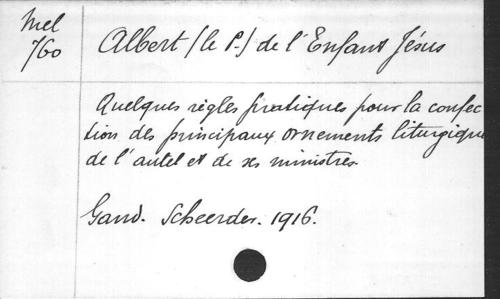 Mel
760
Albert (le P.) de l'Enfant Jésus
Quelques règles pratiques pour la confec
tion des principaux ornements liturgique
de l'autel et de ses ministres.
Gand. Scheerder. 1916.